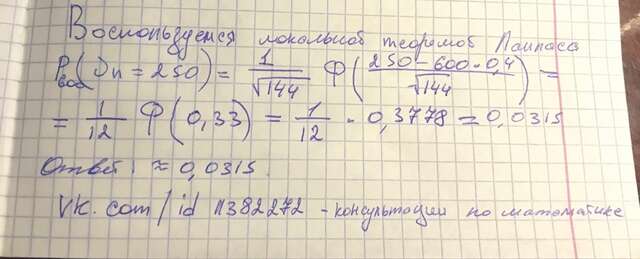 Воспользуемся локальной теоремой Лапласа
P₆₀₀(Sn = 250) = 1/√144 Ф((250 - 600·0,4)/√144) =
= 1/12 Ф(0,33) = 1/12 · 0,3778 = 0,0315
Ответ: ≈ 0,0315.
vk.com/id 11382272 - консультации по математике